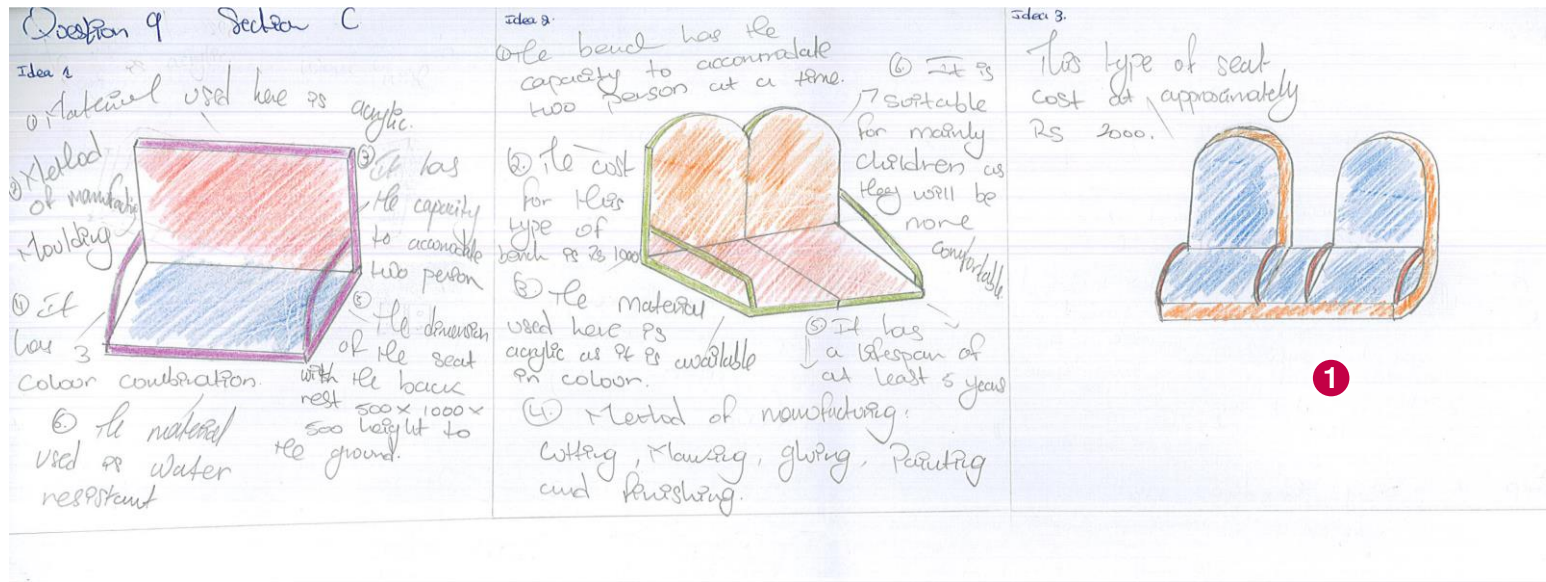 Question 9 Section C
Idea 1
① Material used here is
acrylic.
② Method
of manufactu
Moulding
③ It has
the capacity
to accomodate
two person
④ It
has 3
colour combination.
⑤ The dimension
of the seat
with the back
rest 500 x 1000 x
500 height to
the ground.
6. The material
used is water
resistant
Idea 2.
① The bench has the
capacity to accommodate
two person at a time.
②. The cost
for this
type of
bench is Rs 1000
③ The material
used here is
acrylic as it is available
in colour.
④. Method of manufacturing:
Cutting, Marking, gluing, Painting
and finishing.
⑤ It has
a lifespan of
at least 5 years
⑥ It is
suitable
for mainly
children as
they will be
more
comfortable.
Idea 3.
This type of seat
cost at approximately
Rs 2000.
1